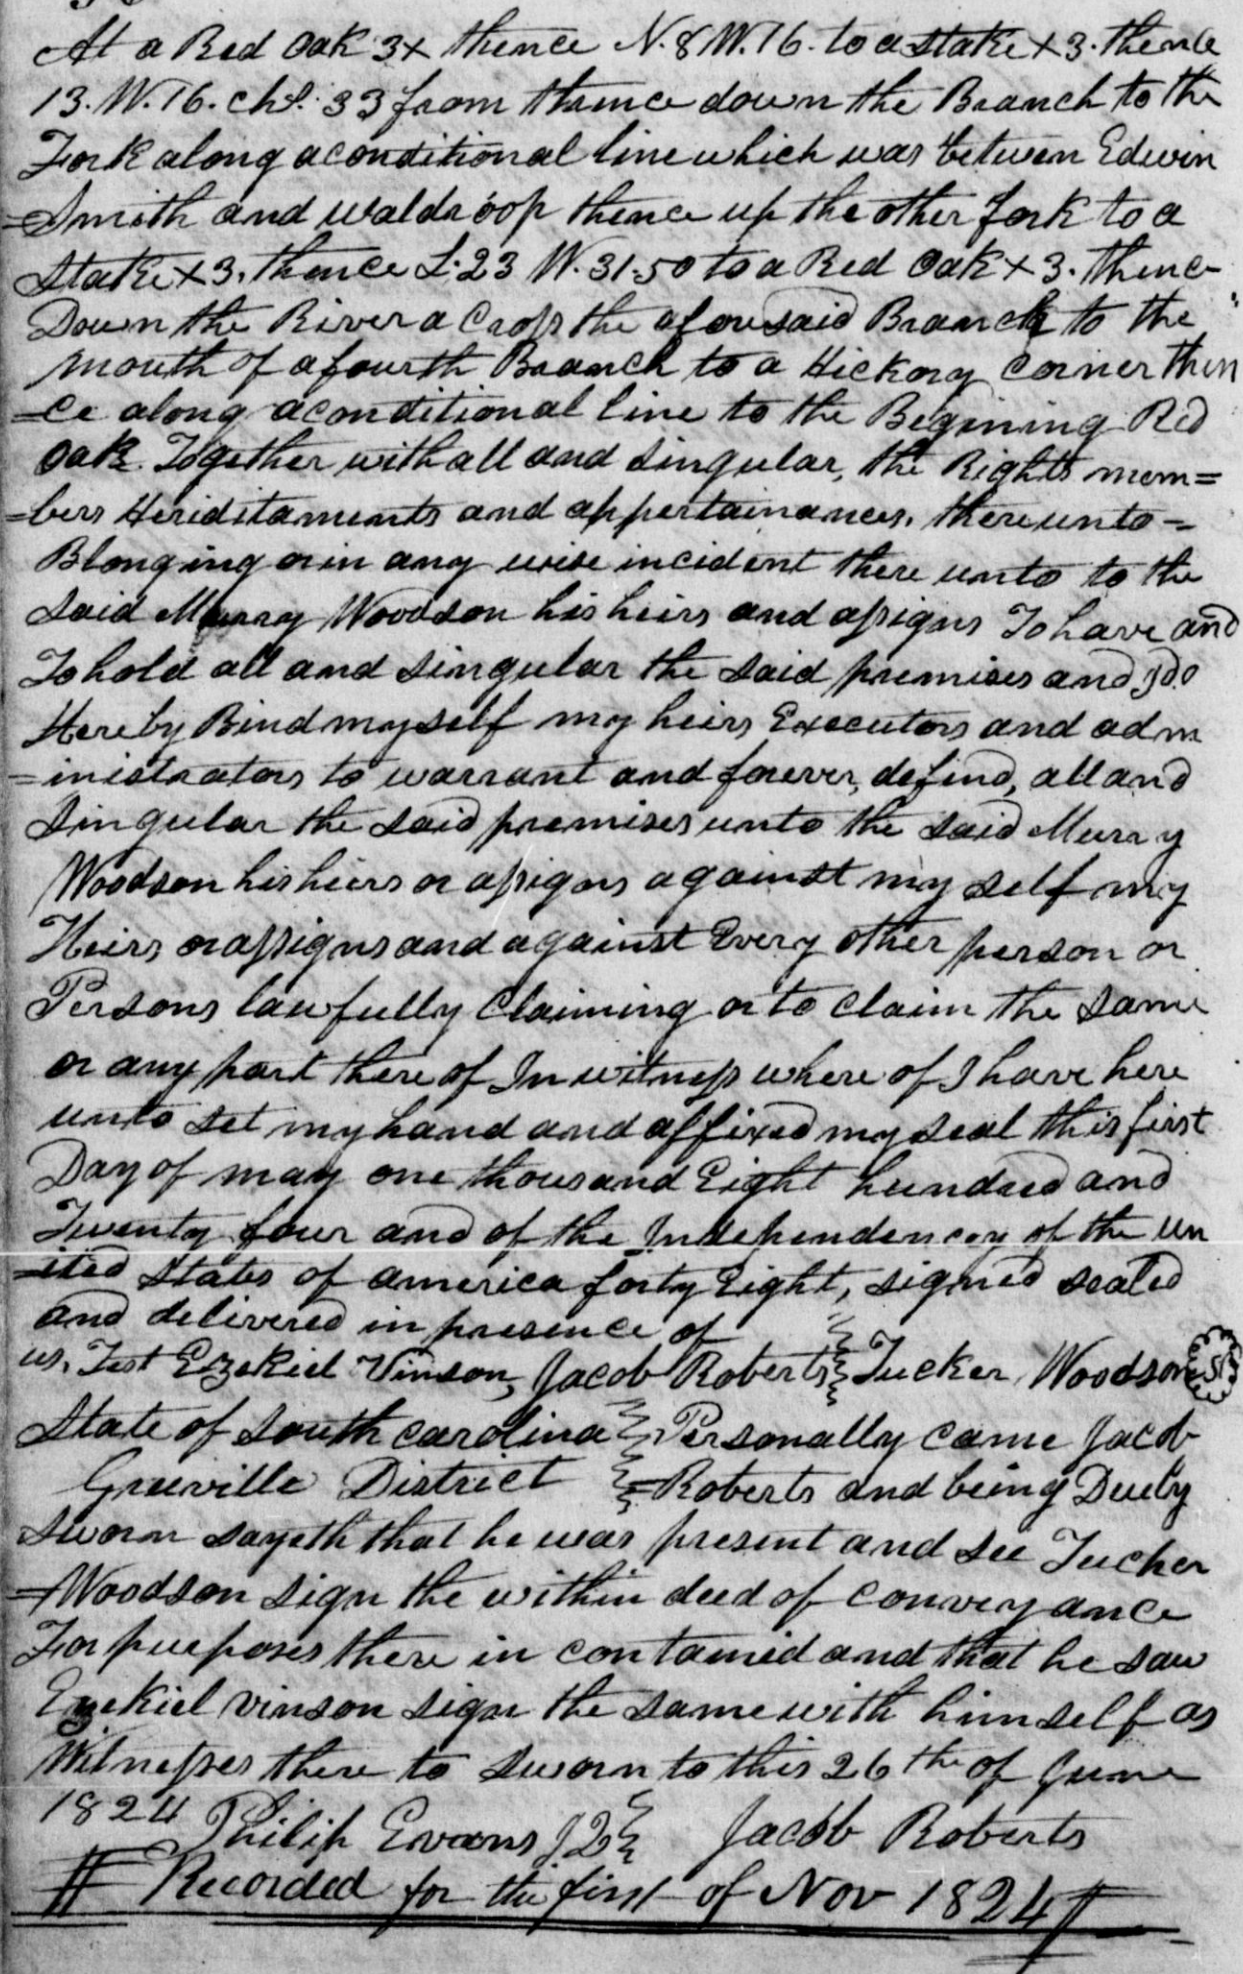 At a Red Oak 3x thence N. 8 W. 76. to a stake x 3. thence
13. W. 76. chs. 33 from thence down the Branch to the
Fork along a conditional line which was between Edwin
Smith and waldroop thence up the other fork to a
Stake x 3. thence S. 23 W. 31.50 to a Red Oak x 3. thence
Down the River a Cross the aforesaid Branch to the
mouth of a fourth Branch to a Hickory Corner then
=ce along a conditional line to the Begining Red
oak. Together with all and Singular, the Rights mem=
=bers Heriditaments and appertainances, there unto =
Blonging or in any wise incident there unto to the
Said Murry Woodson his heirs and assigns To have and
To hold all and Singular the Said premises and I do
Hereby Bind myself my heirs Executors and adm
=inistrators to warrant and forever, defend, all and
Singular the Said premises unto the Said Murry
Woodson his heirs or assigns against my self my
Heirs or assigns and against Every other person or
Persons lawfully Claiming or to Claim the Same
or any part there of In witness where of I have here
unto Set my hand and affixed my Seal this first
Day of may one thousand Eight hundred and
Twenty four and of the Independency of the un
=ited States of america forty Eight, signed sealed
and delivered in presence of
us. Test Ezekiel Vinson, Jacob Roberts Tucker Woodson
State of South carolina Personally came Jacob
Greeville District =Roberts and being Duely
Sworn Sayeth that he was present and See Tucker
=Woodson Sign the within deed of conveyance
For purposes there in contained and that he saw
Ezekiel vinson sign the same with himself as
Witnesses there to Sworn to this 26th of June
1824 Philip Evans J2 Jacob Roberts
Recorded for the first of Nov 1824